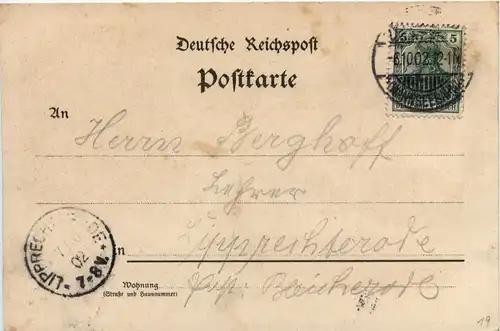 Deutsche Reichspost
Postkarte
5
6.10.02. 12-1N
An
Herrn Berghoff
Lehrer
in Lipprechterode
LIPPRECHTERODE
02
7-8V.
Wohnung
(Straße und Hausnummer)
Post Bleicherode
19